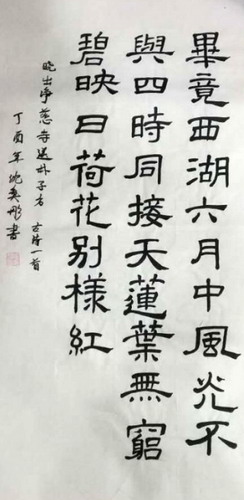 畢竟西湖六月中風光不
與四時同接天蓮葉無窮
碧映日荷花别樣紅
曉出净慈寺送林子方 古诗一首
丁酉年沈英彬書